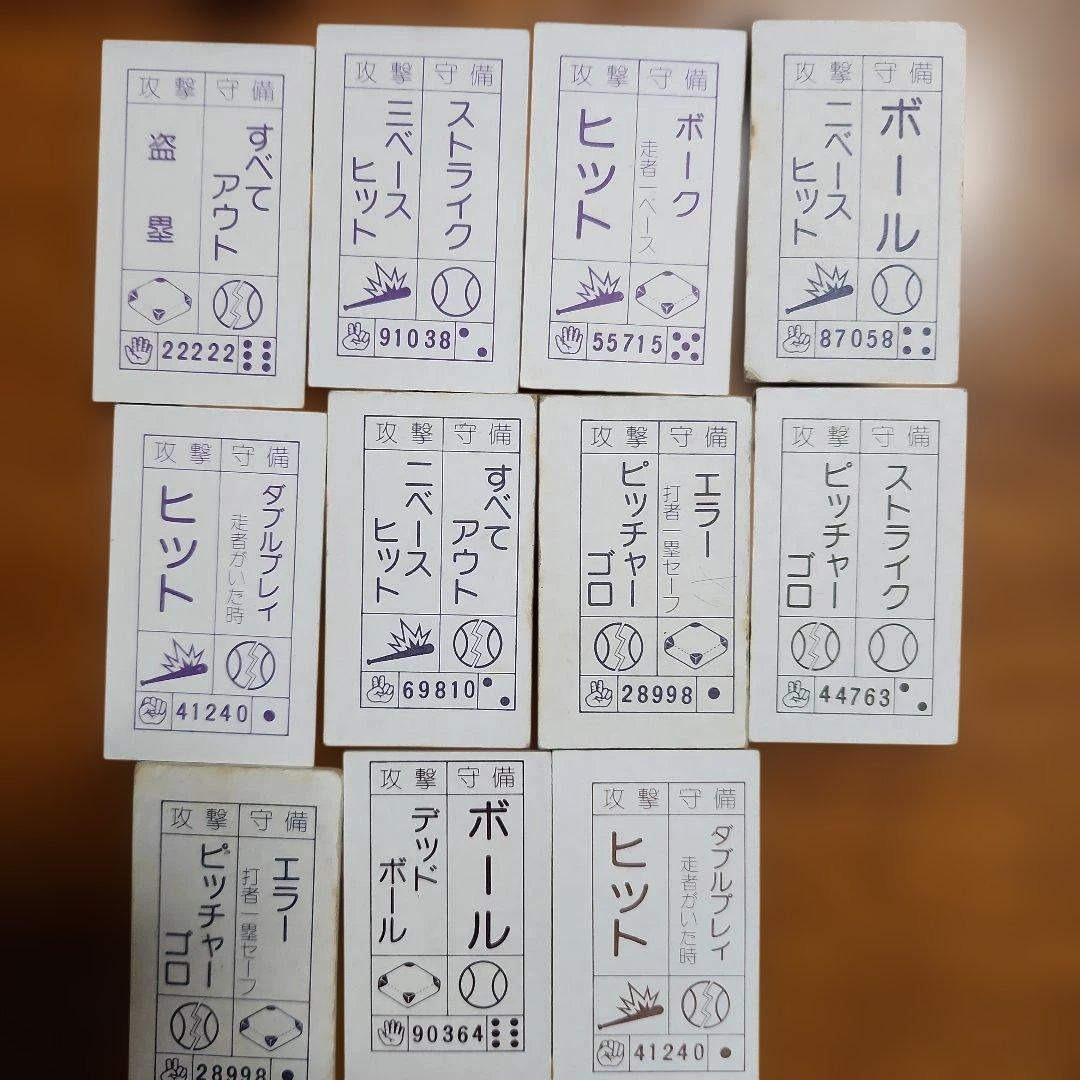 攻撃 守備
すべて
アウト
盗塁
22222
攻撃 守備
ストライク
三ベース
ヒット
91038
攻撃 守備
ボーク
走者一ベース
ヒット
55715
攻撃 守備
ボール
二ベース
ヒット
87058
攻撃 守備
ダブルプレイ
走者がいた時
ヒット
41240
攻撃 守備
すべて
アウト
二ベース
ヒット
69810
攻撃 守備
エラー
打者一塁セーフ
ピッチャー
ゴロ
28998
攻撃 守備
ストライク
ピッチャー
ゴロ
44763
攻撃 守備
エラー
打者一塁セーフ
ピッチャー
ゴロ
28998
攻撃 守備
ボール
デッド
ボール
90364
攻撃 守備
ダブルプレイ
走者がいた時
ヒット
41240